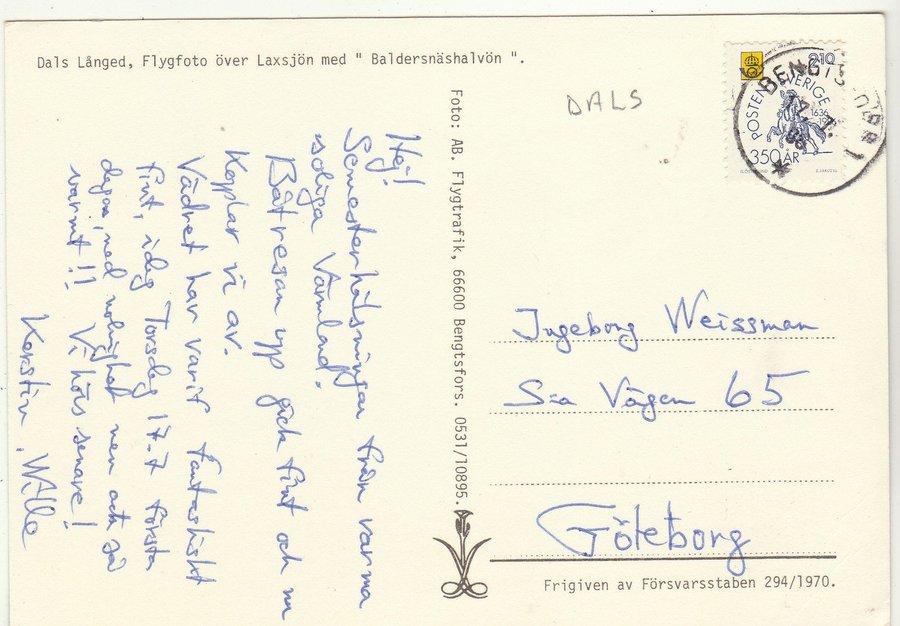 Dals Långed, Flygfoto över Laxsjön med " Baldersnäshalvön ".
DALS
POSTEN SVERIGE
210
1636
350 ÅR
BENGTSFORS 1
17. 7. 86
Hej!
Semesterhälsningar från varma
soliga Värmland.
Båtresan upp gick fint och nu
kopplar vi av.
Vädret har varit fantastiskt
fint, idag Torsdag 17.7 första
dagen, med molnighet men och så
varmt!! Vi hörs senare!
Kerstin, Wille
Foto: AB. Flygtrafik, 66600 Bengtsfors. 0531/10895.
Ingeborg Weissman
S:a Vägen 65
Göteborg
Frigiven av Försvarsstaben 294/1970.